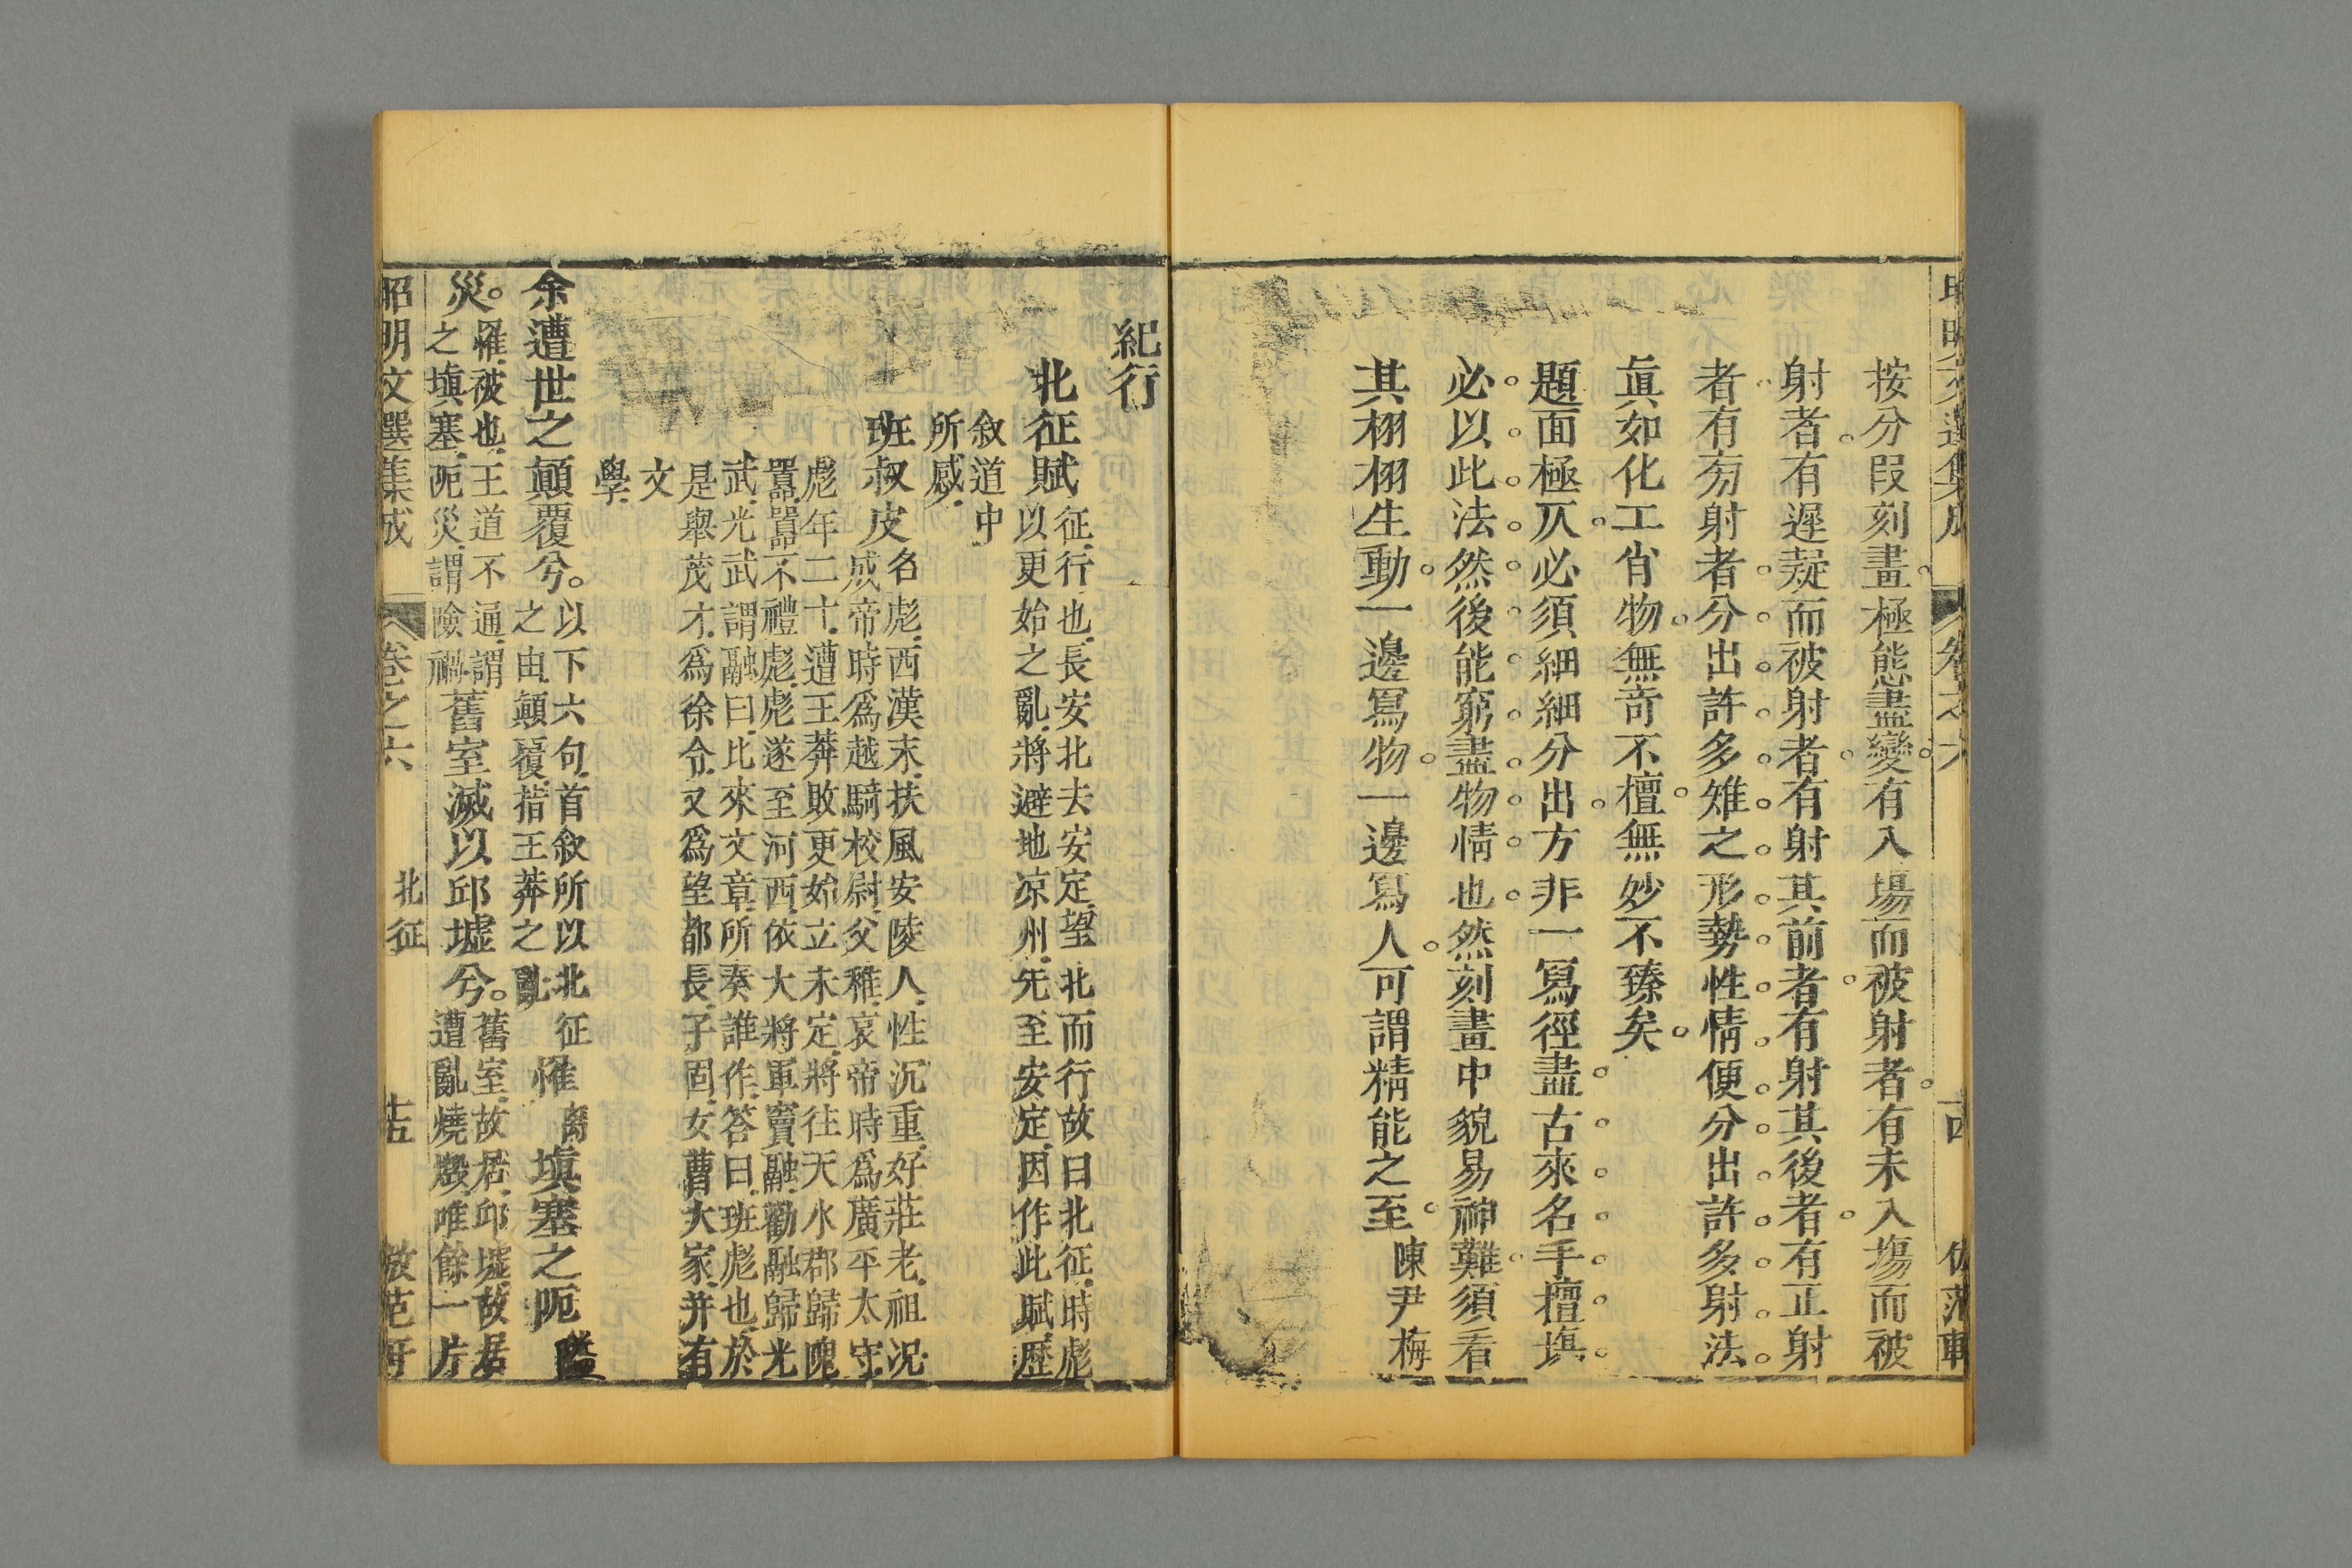 按分段刻畫極態盡變有入場而被射者有未入場而被
射者有遲疑而被射者有射其前者有射其後者有正射
者有旁射者分出許多雉之形勢性情便分出許多射法
眞如化工肖物無奇不檀無妙不臻矣
題面極仄必須細細分出方非一寫徑盡古來名手擅塲
必以此法然後能窮盡物情也然刻畫中貌易神難須看
其栩栩生動一邊寫物一邊寫人可謂精能之至陳尹梅
紀行
北征賦征行也長安北去安定望北而行故曰北征時彪
以更始之亂將避地凉州先至安定因作此賦歷
敘道中
所感
班叔皮名彪西漢末扶風安陵人性沉重好莊老祖况
成帝時爲越騎校尉父稚哀帝時爲廣平太守
彪年二十遭王莽敗更始立未定將往天水郡歸隗
囂囂不禮彪彪遂至河西依大將軍竇融勸融歸光
武光武謂融曰比來文章所奏誰作答曰班彪也於
是舉茂才爲徐令又爲望都長子固女曹大家并有
文
學
余遭世之顛覆兮。以下六句首敘所以北征
之由顛覆指王莽之亂罹離塡塞之阨隘
災。罹被也王道不通謂
之塡塞阨災謂險禍舊室滅以邱墟兮。舊室故居邱墟故居
遭亂燒燬唯餘一片
昭明文選集成
卷之六
北征
十五
倣范軒